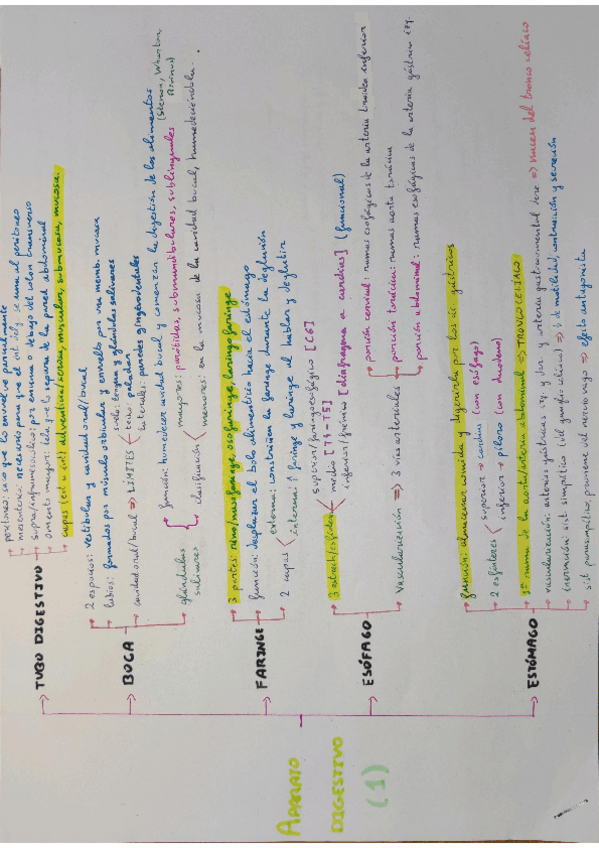 APARATO
DIGESTIVO
(1)
TUBO DIGESTIVO
peritoneo: saco que lo envuelve parcialmente
mesenterio: necesario para que el int. delg. se una al peritoneo
supra/inframesocólico: por encima o debajo del colon transverso
omento mayor: tela que lo separa de la pared abdominal
capas (ext a int) adventicia/serosa, muscular, submucosa, mucosa.
BOCA
2 espacios: vestíbulo y cavidad oral/bucal
labios: formados por músculo orbicular y envuelto por una memb. mucosa
cavidad oral/bucal => LÍMITES
suelo: lengua y glándulas salivares
techo: paladar
laterales: paredes gingivodentales
glándulas
salivares
función: humedecer cavidad bucal y comenzar la digestión de los alimentos
clasificación
mayores: parótidas, submandibulares, sublinguales
(Stenon, Wharton,
Rivinus)
menores: en la mucosa de la cavidad bucal, humedeciéndola.
FARINGE
3 partes: rino/nasofaringe, orofaringe, laringofaringe
función: desplazar el bolo alimenticio hacia el estómago
2 capas
externa: constriñen la faringe durante la deglución
interna: ↑ faringe y laringe al hablar y deglutir
ESÓFAGO
3 estrech/esfínter
superior/faringoesofágico [C6]
medio [T4-T5]
inferior/frénico [diafragma a cardias] (funcional)
vascularización => 3 vías arteriales
porción cervical: ramas esofágicas de la arteria tiroidea inferior
porción torácica: ramas aorta torácica
porción abdominal: ramas esofágicas de la arteria gástrica izq.
ESTÓMAGO
función: almacenar comida y digerirla por los ác. gástricos
2 esfínteres
superior → cardias (con esófago)
inferior → píloro (con duodeno)
1ª rama de la aorta/arteria abdominal => TRONCO CELÍACO
vascularización: arterias gástricas izq. y der. y arteria gastroomental dere => nacen del tronco celíaco
inervación: sist. simpático (del ganglio celíaco) => ↓ de motilidad, contracción y secreción
sist parasimpático, proviene del nervio vago => efecto antagonista